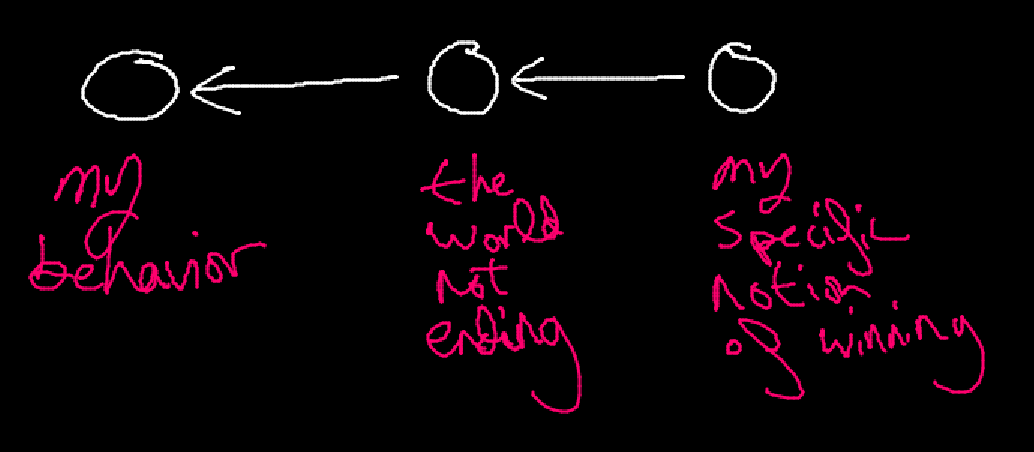 my
behavior
the
world
not
ending
my
specific
notion
of winning